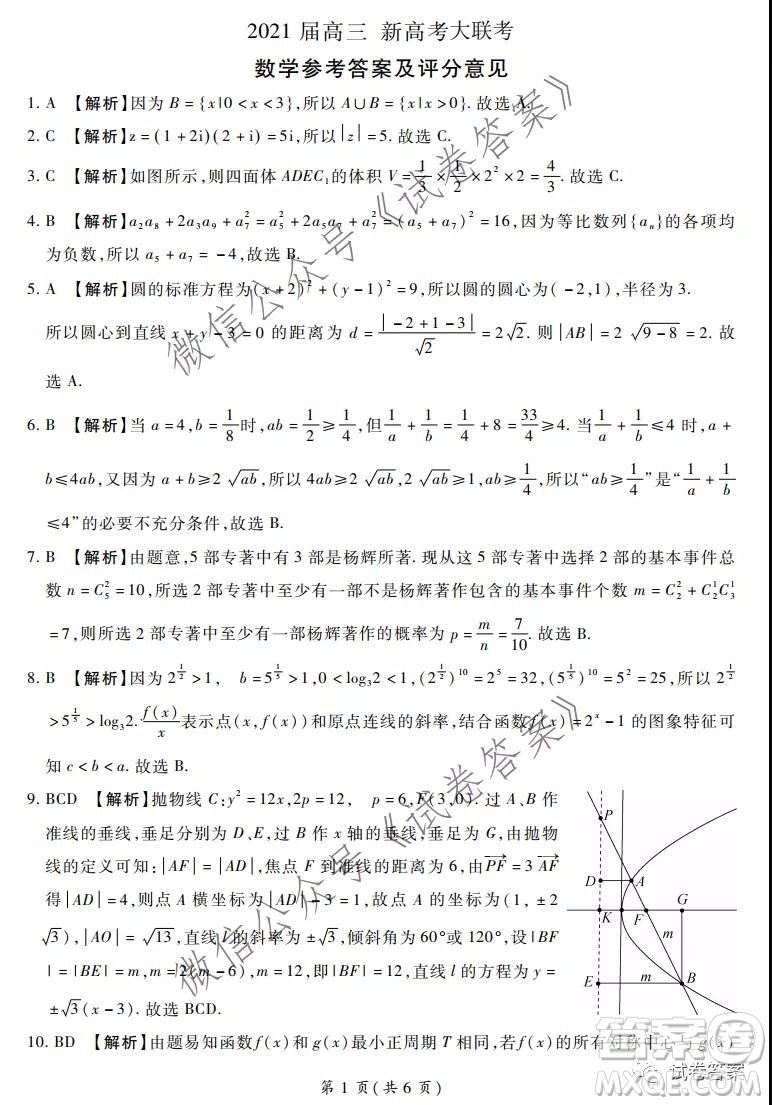 2021 届高三 新高考大联考
数学参考答案及评分意见
1. A 【解析】因为 B = {x|0 < x < 3},所以 A∪B = {x|x > 0}. 故选 A.
2. C 【解析】z = (1 + 2i)(2 + i) = 5i,所以|z| = 5. 故选 C.
3. C 【解析】如图所示,则四面体 ADEC₁的体积 V = 1/3 × 1/2 × 2² × 2 = 4/3. 故选 C.
4. B 【解析】a₂a₈ + 2a₃a₉ + a₇² = a₅² + 2a₅a₇ + a₇² = (a₅ + a₇)² = 16,因为等比数列{aₙ}的各项均
为负数,所以 a₅ + a₇ = -4,故选 B.
5. A 【解析】圆的标准方程为(x + 2)² + (y - 1)² = 9,所以圆的圆心为( - 2,1),半径为 3.
所以圆心到直线 x + y - 3 = 0 的距离为 d = |-2 + 1 - 3|/√2 = 2√2. 则|AB| = 2 √(9 - 8) = 2. 故
选 A.
6. B 【解析】当 a = 4,b = 1/8时,ab = 1/2 ≥ 1/4,但1/a + 1/b = 1/4 + 8 = 33/4 ≥ 4. 当1/a + 1/b ≤ 4 时,a +
b ≤ 4ab,又因为 a + b ≥ 2 √ab,所以 4ab ≥ 2 √ab,2 √ab ≥ 1,ab ≥ 1/4,所以“ab ≥ 1/4”是“1/a + 1/b
≤ 4”的必要不充分条件,故选 B.
7. B 【解析】由题意,5 部专著中有 3 部是杨辉所著. 现从这 5 部专著中选择 2 部的基本事件总
数 n = C₅² = 10,所选 2 部专著中至少有一部不是杨辉著作包含的基本事件个数 m = C₂² + C₂¹C₃¹
= 7,则所选 2 部专著中至少有一部杨辉著作的概率为 p = m/n = 7/10. 故选 B.
8. B 【解析】因为 2^(1/2) > 1, b = 5^(1/5) > 1,0 < log₃2 < 1,(2^(1/2))¹⁰ = 2⁵ = 32,(5^(1/5))¹⁰ = 5² = 25,所以 2^(1/2)
> 5^(1/5) > log₃2. f(x)/x表示点(x,f(x))和原点连线的斜率,结合函数f(x) = 2ˣ - 1 的图象特征可
知 c < b < a. 故选 B.
9. BCD 【解析】抛物线 C:y² = 12x,2p = 12, p = 6,F(3,0). 过 A、B 作
准线的垂线,垂足分别为 D、E,过 B 作 x 轴的垂线,垂足为 G,由抛物
线的定义可知:|AF| = |AD|,焦点 F 到准线的距离为 6,由PF→ = 3 AF→
得|AD| = 4,则点 A 横坐标为|AD| - 3 = 1,故点 A 的坐标为(1, ±2
√3),|AO| = √13,直线 l 的斜率为 ±√3,倾斜角为 60°或 120°,设|BF
| = |BE| = m,m = 2(m - 6),m = 12,即|BF| = 12,直线 l 的方程为 y =
±√3(x - 3). 故选 BCD.
P
D
A
G
K
F
m
E
m
B
10. BD 【解析】由题易知函数 f(x)和 g(x)最小正周期 T 相同,若f(x)的所有对称中心与 g(x)
第 1 页(共 6 页)
微信公众号《试卷答案》
微信公众号《试卷答案》
试卷答案
答案圈
MXQE.COM